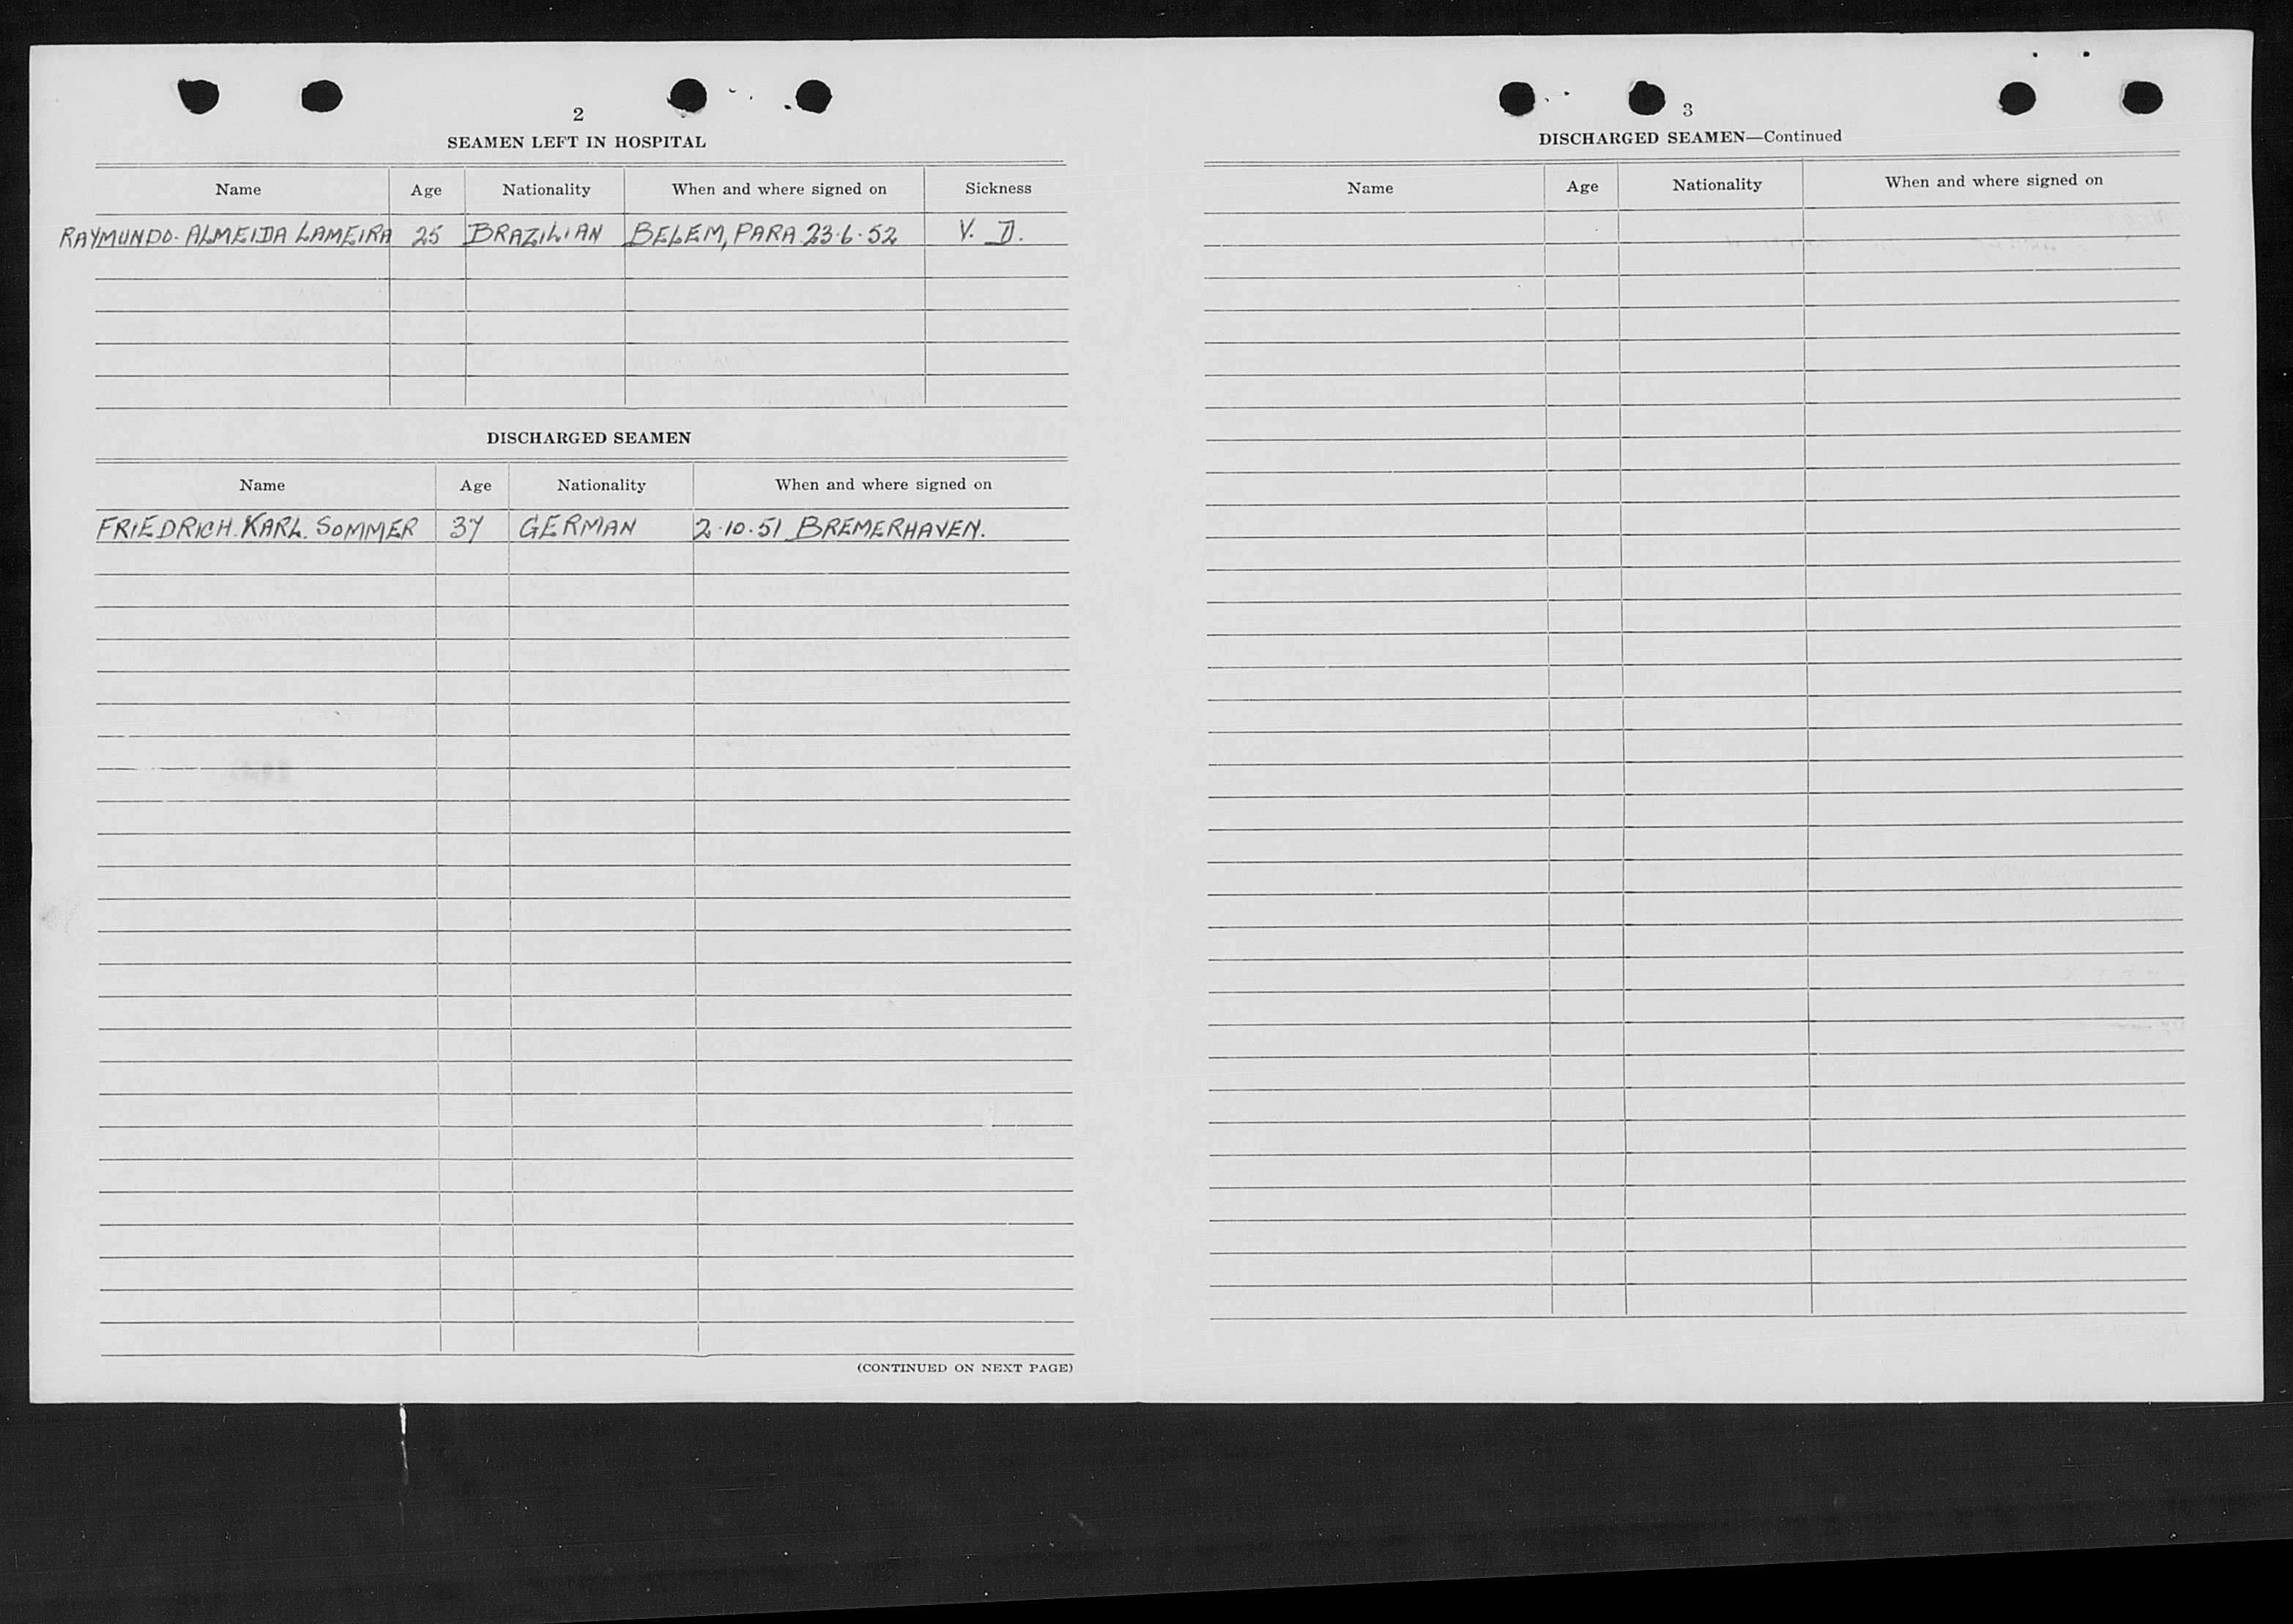 2
SEAMEN LEFT IN HOSPITAL
Name Age Nationality When and where signed on Sickness
RAYMUNDO. ALMEIDA LAMEIRA 25 BRAZILIAN BELEM, PARA 23.6.52 V. D.
DISCHARGED SEAMEN
Name Age Nationality When and where signed on
FRIEDRICH. KARL. SOMMER 37 GERMAN 2.10.51 BREMERHAVEN.
(CONTINUED ON NEXT PAGE)
3
DISCHARGED SEAMEN—Continued
Name Age Nationality When and where signed on